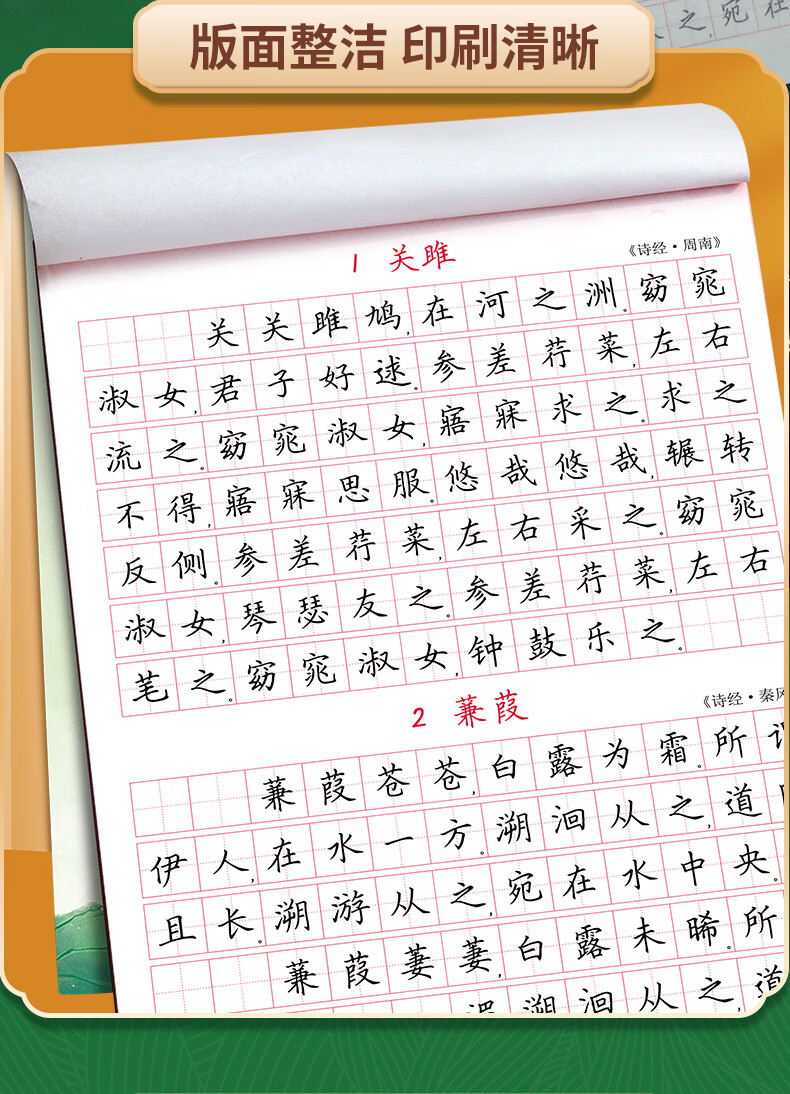 版面整洁 印刷清晰
之,宛在
1 关雎
《诗经·周南》
关关雎鸠,在河之洲。窈窕
淑女,君子好逑。参差荇菜,左右
流之。窈窕淑女,寤寐求之。求之
不得,寤寐思服。悠哉悠哉,辗转
反侧。参差荇菜,左右采之。窈窕
淑女,琴瑟友之。参差荇菜,左右
芼之。窈窕淑女,钟鼓乐之。
2 蒹葭
《诗经·秦风
蒹葭苍苍,白露为霜。所
伊人,在水一方。溯洄从之,道
且长。溯游从之,宛在水中央。
蒹葭萋萋,白露未晞。所
溯洄从之,道